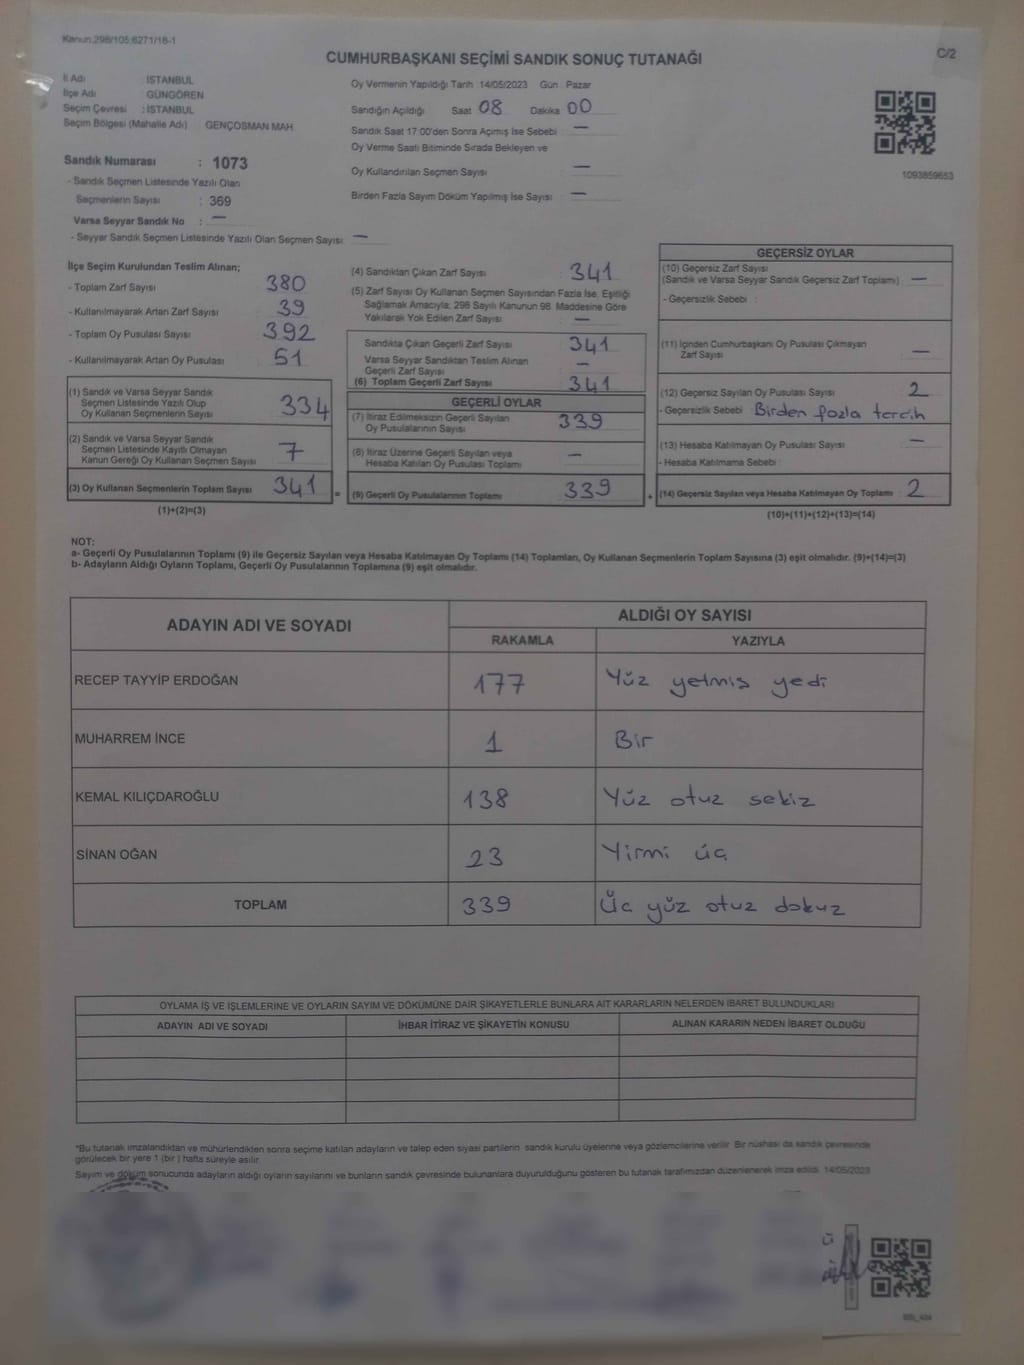 Kanun.298/105;6271/18-1
CUMHURBAŞKANI SEÇİMİ SANDIK SONUÇ TUTANAĞI
C/2
İl Adı : İSTANBUL
İlçe Adı : GÜNGÖREN
Seçim Çevresi : İSTANBUL
Seçim Bölgesi (Mahalle Adı) GENÇOSMAN MAH.
Sandık Numarası : 1073
- Sandık Seçmen Listesinde Yazılı Olan
Seçmenlerin Sayısı : 369
Varsa Seyyar Sandık No : —
- Seyyar Sandık Seçmen Listesinde Yazılı Olan Seçmen Sayısı: —
Oy Vermenin Yapıldığı Tarih :14/05/2023 Gün : Pazar
Sandığın Açıldığı Saat 08 Dakika 00
Sandık Saat 17:00'den Sonra Açımış İse Sebebi : —
Oy Verme Saati Bitiminde Sırada Bekleyen ve
Oy Kullandırılan Seçmen Sayısı : —
Birden Fazla Sayım Döküm Yapılmış İse Sayısı : —
1093859653
İlçe Seçim Kurulundan Teslim Alınan;
- Toplam Zarf Sayısı : 380
- Kullanılmayarak Artan Zarf Sayısı : 39
- Toplam Oy Pusulası Sayısı : 392
- Kullanılmayarak Artan Oy Pusulası : 51
(1) Sandık ve Varsa Seyyar Sandık
Seçmen Listesinde Yazılı Olup
Oy Kullanan Seçmenlerin Sayısı : 334
(2) Sandık ve Varsa Seyyar Sandık
Seçmen Listesinde Kayıtlı Olmayan
Kanun Gereği Oy Kullanan Seçmen Sayısı : 7
(3) Oy Kullanan Seçmenlerin Toplam Sayısı : 341
(1)+(2)=(3)
(4) Sandıktan Çıkan Zarf Sayısı : 341
(5) Zarf Sayısı Oy Kullanan Seçmen Sayısından Fazla İse, Eşitliği
Sağlamak Amacıyla; 298 Sayılı Kanunun 98. Maddesine Göre
Yakılarak Yok Edilen Zarf Sayısı : —
Sandıkta Çıkan Geçerli Zarf Sayısı : 341
Varsa Seyyar Sandıktan Teslim Alınan
Geçerli Zarf Sayısı : —
(6) Toplam Geçerli Zarf Sayısı : 341
GEÇERLİ OYLAR
(7) İtiraz Edilmeksizin Geçerli Sayılan
Oy Pusulalarının Sayısı : 339
(8) İtiraz Üzerine Geçerli Sayılan veya
Hesaba Katılan Oy Pusulası Toplamı : —
= (9) Geçerli Oy Pusulalarının Toplamı : 339
GEÇERSİZ OYLAR
(10) Geçersiz Zarf Sayısı
(Sandık ve Varsa Seyyar Sandık Geçersiz Zarf Toplamı) : —
- Geçersizlik Sebebi :
(11) İçinden Cumhurbaşkanı Oy Pusulası Çıkmayan
Zarf Sayısı : —
(12) Geçersiz Sayılan Oy Pusulası Sayısı : 2
- Geçersizlik Sebebi : Birden fazla tercih
(13) Hesaba Katılmayan Oy Pusulası Sayısı : —
- Hesaba Katılmama Sebebi :
+ (14) Geçersiz Sayılan veya Hesaba Katılmayan Oy Toplamı : 2
(10)+(11)+(12)+(13)=(14)
NOT:
a- Geçerli Oy Pusulalarının Toplamı (9) ile Geçersiz Sayılan veya Hesaba Katılmayan Oy Toplamı (14) Toplamları, Oy Kullanan Seçmenlerin Toplam Sayısına (3) eşit olmalıdır. (9)+(14)=(3)
b- Adayların Aldığı Oyların Toplamı, Geçerli Oy Pusulalarının Toplamına (9) eşit olmalıdır.
ADAYIN ADI VE SOYADI ALDIĞI OY SAYISI
RAKAMLA YAZIYLA
RECEP TAYYİP ERDOĞAN 177 Yüz yetmiş yedi
MUHARREM İNCE 1 Bir
KEMAL KILIÇDAROĞLU 138 Yüz otuz sekiz
SİNAN OĞAN 23 Yirmi üç
TOPLAM 339 Üç yüz otuz dokuz
OYLAMA İŞ VE İŞLEMLERİNE VE OYLARIN SAYIM VE DÖKÜMÜNE DAİR ŞİKAYETLERLE BUNLARA AİT KARARLARIN NELERDEN İBARET BULUNDUKLARI
ADAYIN ADI VE SOYADI İHBAR İTİRAZ VE ŞİKAYETİN KONUSU ALINAN KARARIN NEDEN İBARET OLDUĞU
*Bu tutanak imzalandıktan ve mühürlendikten sonra seçime katılan adayların ve talep eden siyasi partilerin sandık kurulu üyelerine veya gözlemcilerine verilir. Bir nüshası da sandık çevresinde
görülecek bir yere 1 (bir ) hafta süreyle asılır.
Sayım ve döküm sonucunda adayların aldığı oyların sayılarını ve bunların sandık çevresinde bulunanlara duyurulduğunu gösteren bu tutanak tarafımızdan düzenlenerek imza edildi. 14/05/2023